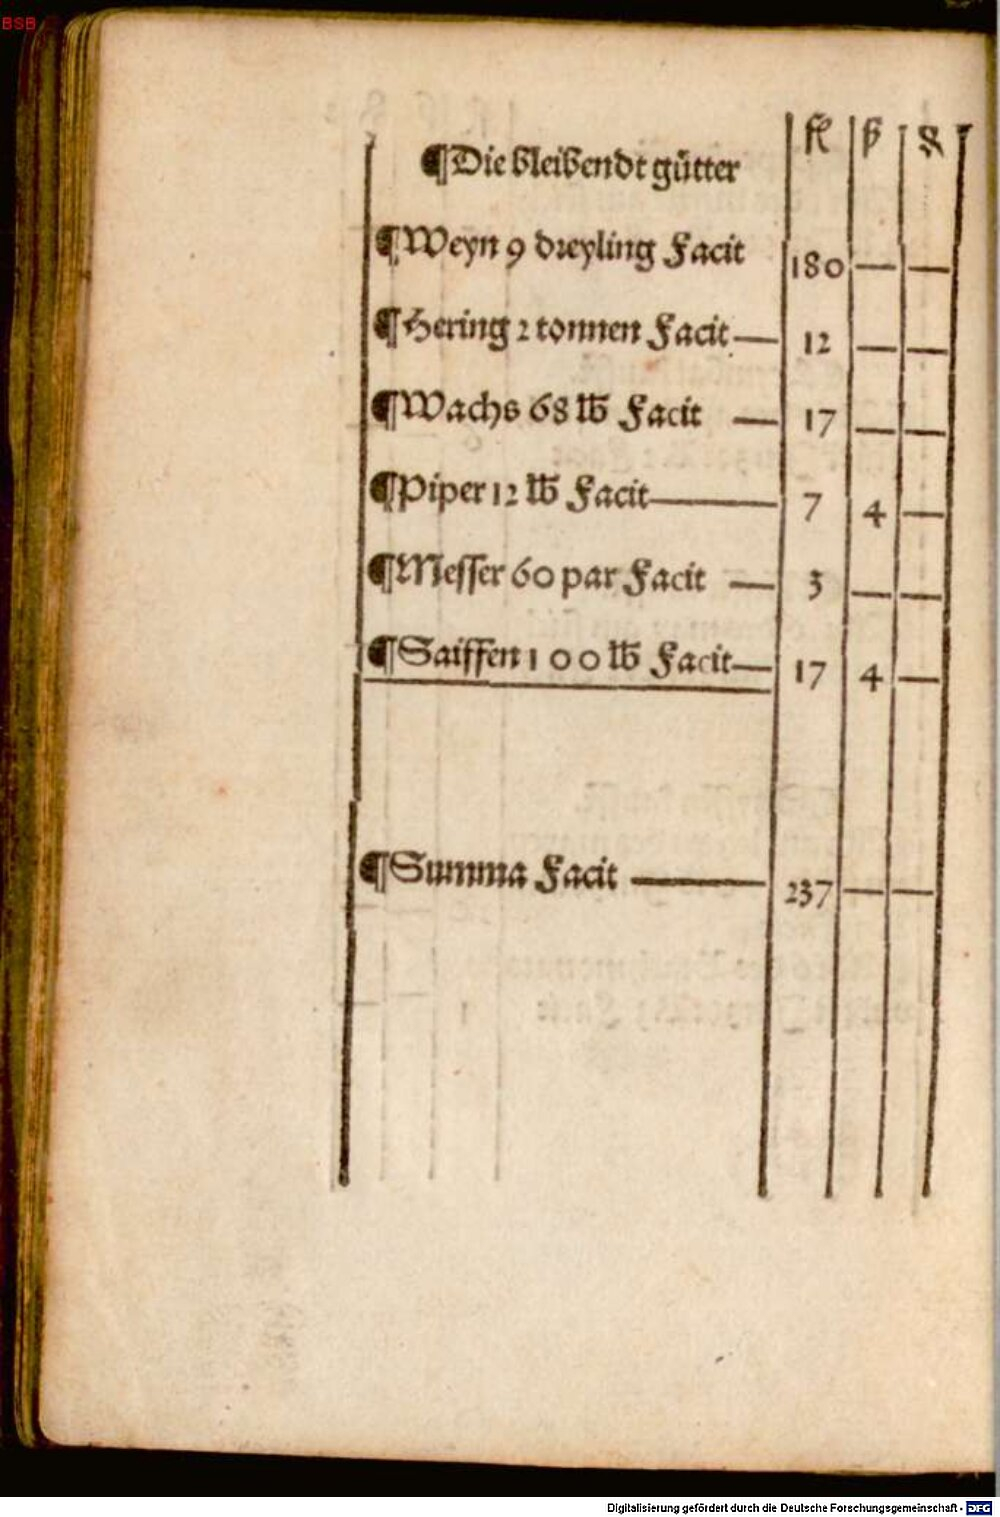 BSB
fl ß ₰
¶Die bleibendt gütter
¶Weyn 9 dreyling Facit 180 — —
¶Hering 2 tonnen Facit — 12 — —
¶Wachs 68 lb Facit — 17 — —
¶Piper 12 lb Facit — 7 4 —
¶Messer 60 par Facit — 3 — —
¶Saiffen 100 lb Facit — 17 4 —
¶Summa Facit — 237 — —
Digitalisierung gefördert durch die Deutsche Forschungsgemeinschaft - DFG